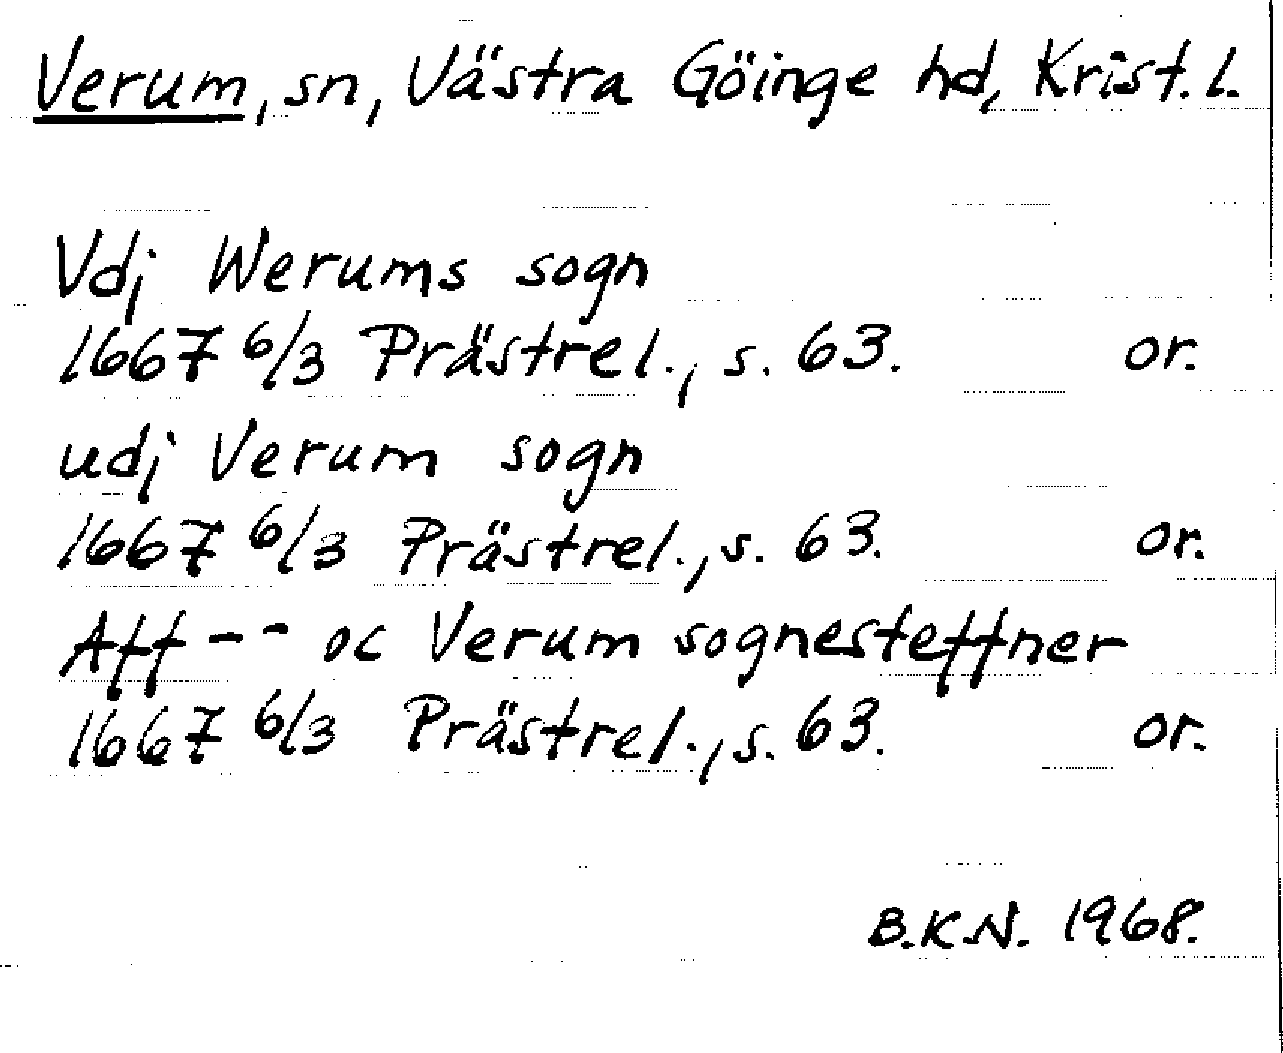 Verum, sn, Västra Göinge hd, Krist. l.
Vdj Werums sogn
1667 6/3 Prästrel., s. 63. or.
udj Verum sogn
1667 6/3 Prästrel., s. 63. or.
Aff - - oc Verum sognesteffner
1667 6/3 Prästrel., s. 63. or.
B.K.N. 1968.